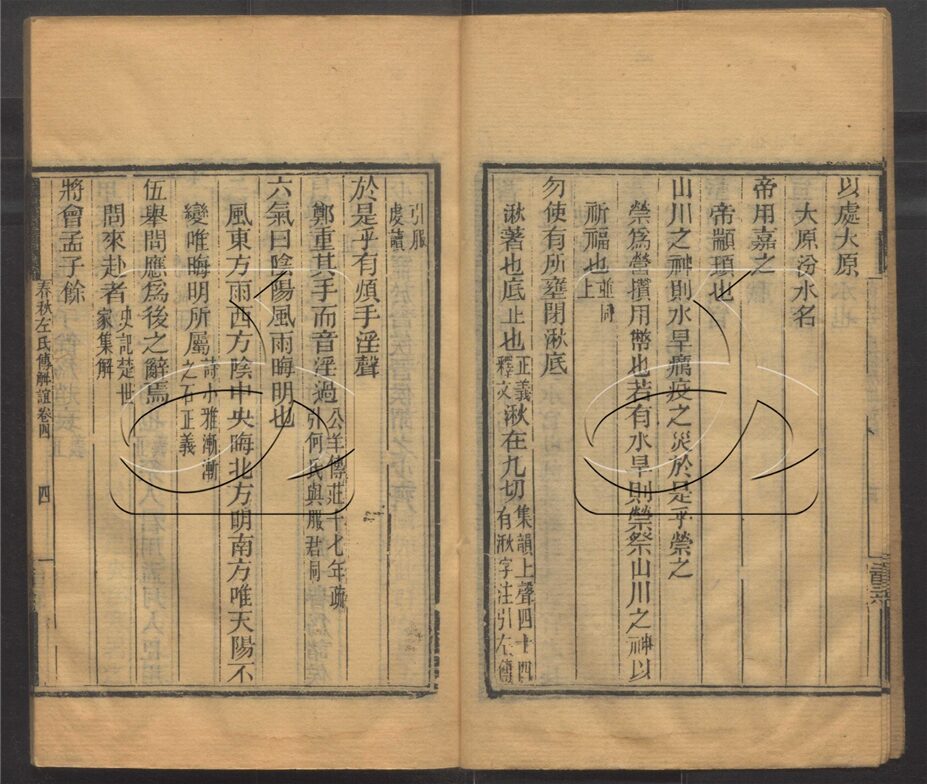 以處大原
大原汾水名
帝用嘉之
帝顓頊也
山川之神則水旱癘疫之災於是乎禜之
禜為營攢用幣也若有水旱則禜祭山川之神以
祈福也並同上
勿使有所壅閉湫底
湫著也底止也正義釋文湫在九切集韻上聲四十四有湫字注引左傳
引服虔讀
於是乎有煩手淫聲
鄭重其手而音淫過公羊傳莊十七年疏引何氏與服君同
六氣曰陰陽風雨晦明也
風東方雨西方陰中央晦北方明南方唯天陽不
變唯晦明所屬詩小雅漸漸之石正義
伍舉問應為後之辭焉
問來赴者史記楚世家集解
將會孟子餘
春秋左氏傳解誼卷四
四